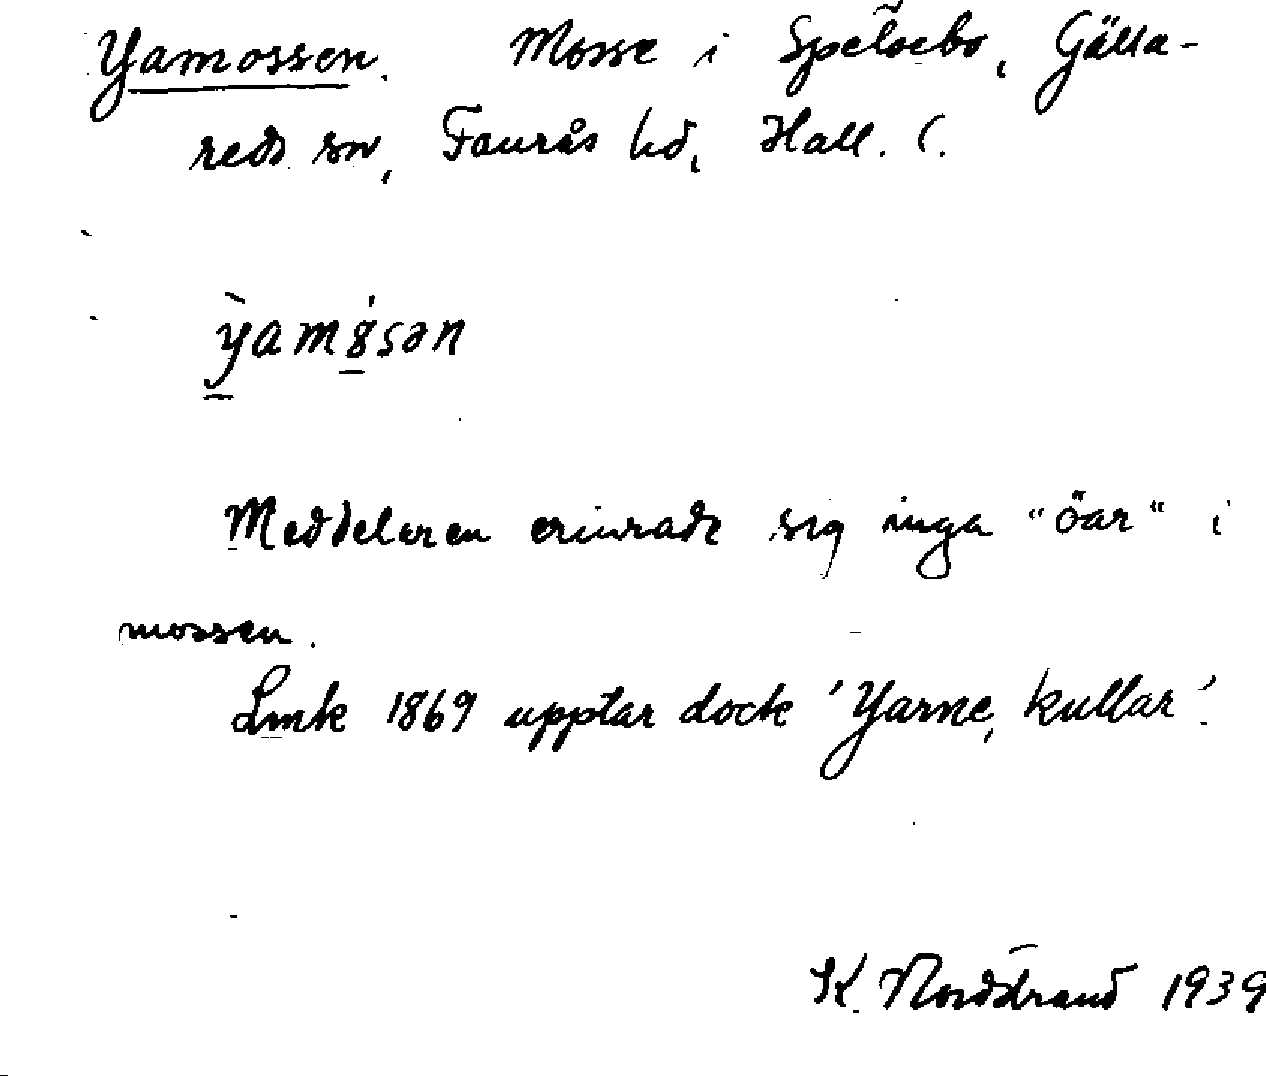 Yamossen. Mosse i Spelsebo, Gälla-
reds sn, Faurås hd, Hall. l.
ỳamósən
Meddelaren erinrade sig inga "öar" i
mossen.
Lmk 1869 upptar dock 'Yarne, kullar'.
K. Nordstrand 1939